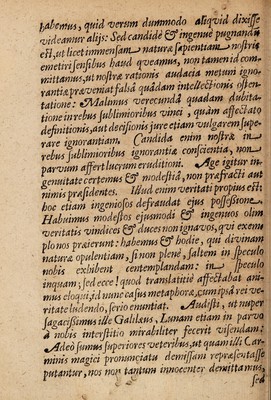 habemus, quid verum dummodo aliquid dixisse
videamur alijs: Sed candidè & ingenuè pugnandũ
est, ut licet immensam naturæ sapientiam nostris
emetiri sensibus haud queamus, non tamen id com-
mittamus, ut nostræ rationis audacia metum igno-
rantiæ præveniat falsâ quâdam intellectionis osten-
tatione: Malimus verecundâ quadam dubita-
tione in rebus sublimioribus vinci, quàm affectato
definitionis, aut decisionis jure etiam vulgarem supe-
rare ignorantiam. Candida enim nostræ in
rebus sublimioribus ignorantiæ conscientia, non
parvum affert lucrum eruditioni. Age igitur in-
genuitate certemus & modestiâ, non præfracti aut
nimis præsidentes. Illud enim veritati propius est:
hoc etiam ingeniosos defraudat ejus possessione.
Habuimus modestos ejusmodi & ingenuos olim
veritatis vindices & duces non ignavos, qui exem-
plo nos præierunt: habemus & hodie, qui divinam
naturæ opulentiam, si non plenè, saltem in speculo
nobis exhibent contemplandam: in speculo
inquam; sed ecce! quod translatitiè affectabat ani-
mus eloqui, id nunc easus metaphoræ, cum ipsâ rei ve-
ritate ludendo, seriò enuntiat. Audisti, ut nuper
sagacissimus ille Galilæus, Lunam etiam in parvo
à nobis interstitio mirabiliter fecerit visendam:
Adeò sumus superiores veteribus, ut quam illi Car-
minis magici pronunciatu demissam repræsentasse
putantur, nos non tantum innocenter demittamus,
sed